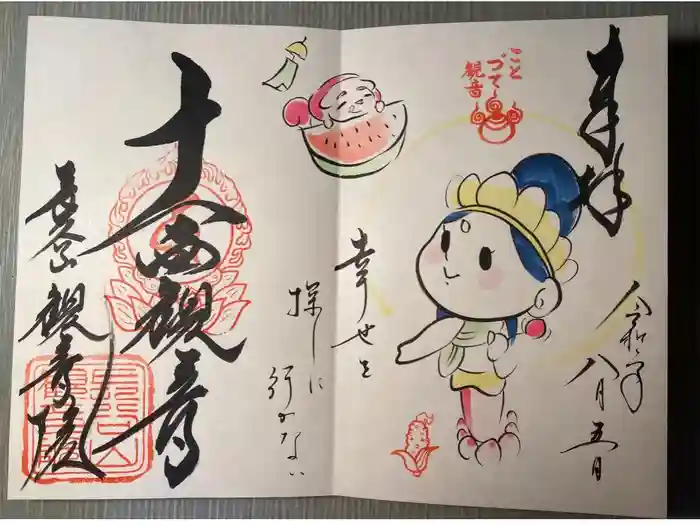 奉拝
令和二年
八月五日
ことづて観音
幸せを
探しに
行かない
十一面観音
観音院